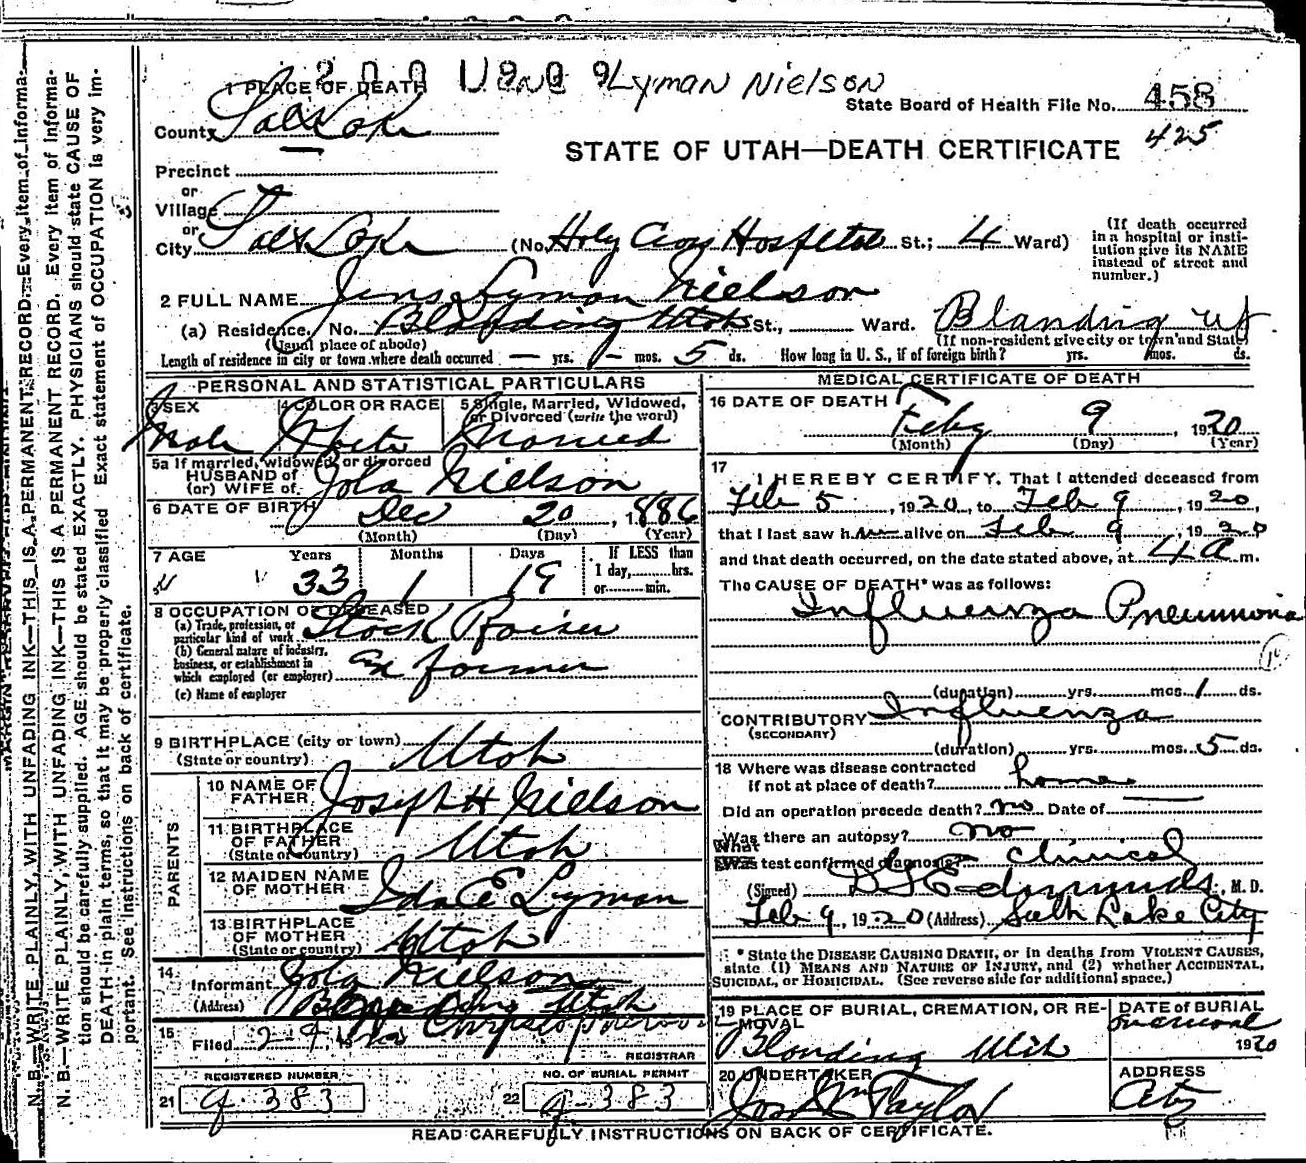 200 1909 Lyman Nielson
1 PLACE OF DEATH
State Board of Health File No. 458
425
County Salt Lake
STATE OF UTAH—DEATH CERTIFICATE
Precinct
or
Village
or
City Salt Lake (No. Holy Cross Hospital St.; 4 Ward)
(If death occurred in a hospital or insti-
tution give its NAME
instead of street and
number.)
2 FULL NAME Jens Lyman Nielson
(a) Residence, No. Blanding Utah St., Ward. Blanding Ut.
(Usual place of abode) (If non-resident give city or town and State)
Length of residence in city or town where death occurred — yrs. — mos. 5 ds. How long in U. S., if of foreign birth? yrs. mos. ds.
PERSONAL AND STATISTICAL PARTICULARS
3 SEX 4 COLOR OR RACE 5 Single, Married, Widowed,
or Divorced (write the word)
Male White Married
5a If married, widowed, or divorced
HUSBAND of
(or) WIFE of Iola Nielson
6 DATE OF BIRTH Dec 20, 1886
(Month) (Day) (Year)
7 AGE Years Months Days If LESS than
1 day, hrs.
or min.
33 1 19
8 OCCUPATION OF DECEASED
(a) Trade, profession, or
particular kind of work Stock Raiser
(b) General nature of industry,
business, or establishment in
which employed (or employer) farmer
(c) Name of employer
9 BIRTHPLACE (city or town)
(State or country) Utah
PARENTS
10 NAME OF
FATHER Joseph H Nielson
11 BIRTHPLACE
OF FATHER
(State or country) Utah
12 MAIDEN NAME
OF MOTHER Ida E Lyman
13 BIRTHPLACE
OF MOTHER
(State or country) Utah
14 Informant Iola Nielson
(Address) Blanding Utah
15 Filed 2-9
REGISTRAR
REGISTERED NUMBER NO. OF BURIAL PERMIT
21 383 22 383
MEDICAL CERTIFICATE OF DEATH
16 DATE OF DEATH
Feby 9, 1920
(Month) (Day) (Year)
17 I HEREBY CERTIFY, That I attended deceased from
Feb 5, 1920, to Feb 9, 1920,
that I last saw him alive on Feb 9, 1920
and that death occurred, on the date stated above, at 4 a m.
The CAUSE OF DEATH* was as follows:
Influenza Pneumonia
(duration) yrs. mos. 1 ds.
CONTRIBUTORY Influenza
(SECONDARY)
(duration) yrs. mos. 5 ds.
18 Where was disease contracted
if not at place of death? home
Did an operation precede death? no Date of
Was there an autopsy? no
What test confirmed diagnosis? Clinical
(Signed) Edmunds, M. D.
Feb 9, 1920 (Address) Salt Lake City
* State the DISEASE CAUSING DEATH, or in deaths from VIOLENT CAUSES,
state (1) MEANS AND NATURE OF INJURY, and (2) whether ACCIDENTAL,
SUICIDAL, or HOMICIDAL. (See reverse side for additional space.)
19 PLACE OF BURIAL, CREMATION, OR RE-
MOVAL
DATE of BURIAL
removal
Blanding Utah 1920
20 UNDERTAKER ADDRESS
Jos Wm Taylor City
READ CAREFULLY INSTRUCTIONS ON BACK OF CERTIFICATE.
N. B.—WRITE PLAINLY, WITH UNFADING INK—THIS IS A PERMANENT RECORD. Every item of informa-
N. B.—WRITE PLAINLY, WITH UNFADING INK—THIS IS A PERMANENT RECORD. Every item of informa-
tion should be carefully supplied. AGE should be stated EXACTLY. PHYSICIANS should state CAUSE OF
DEATH in plain terms, so that it may be properly classified. Exact statement of OCCUPATION is very im-
portant. See instructions on back of certificate.